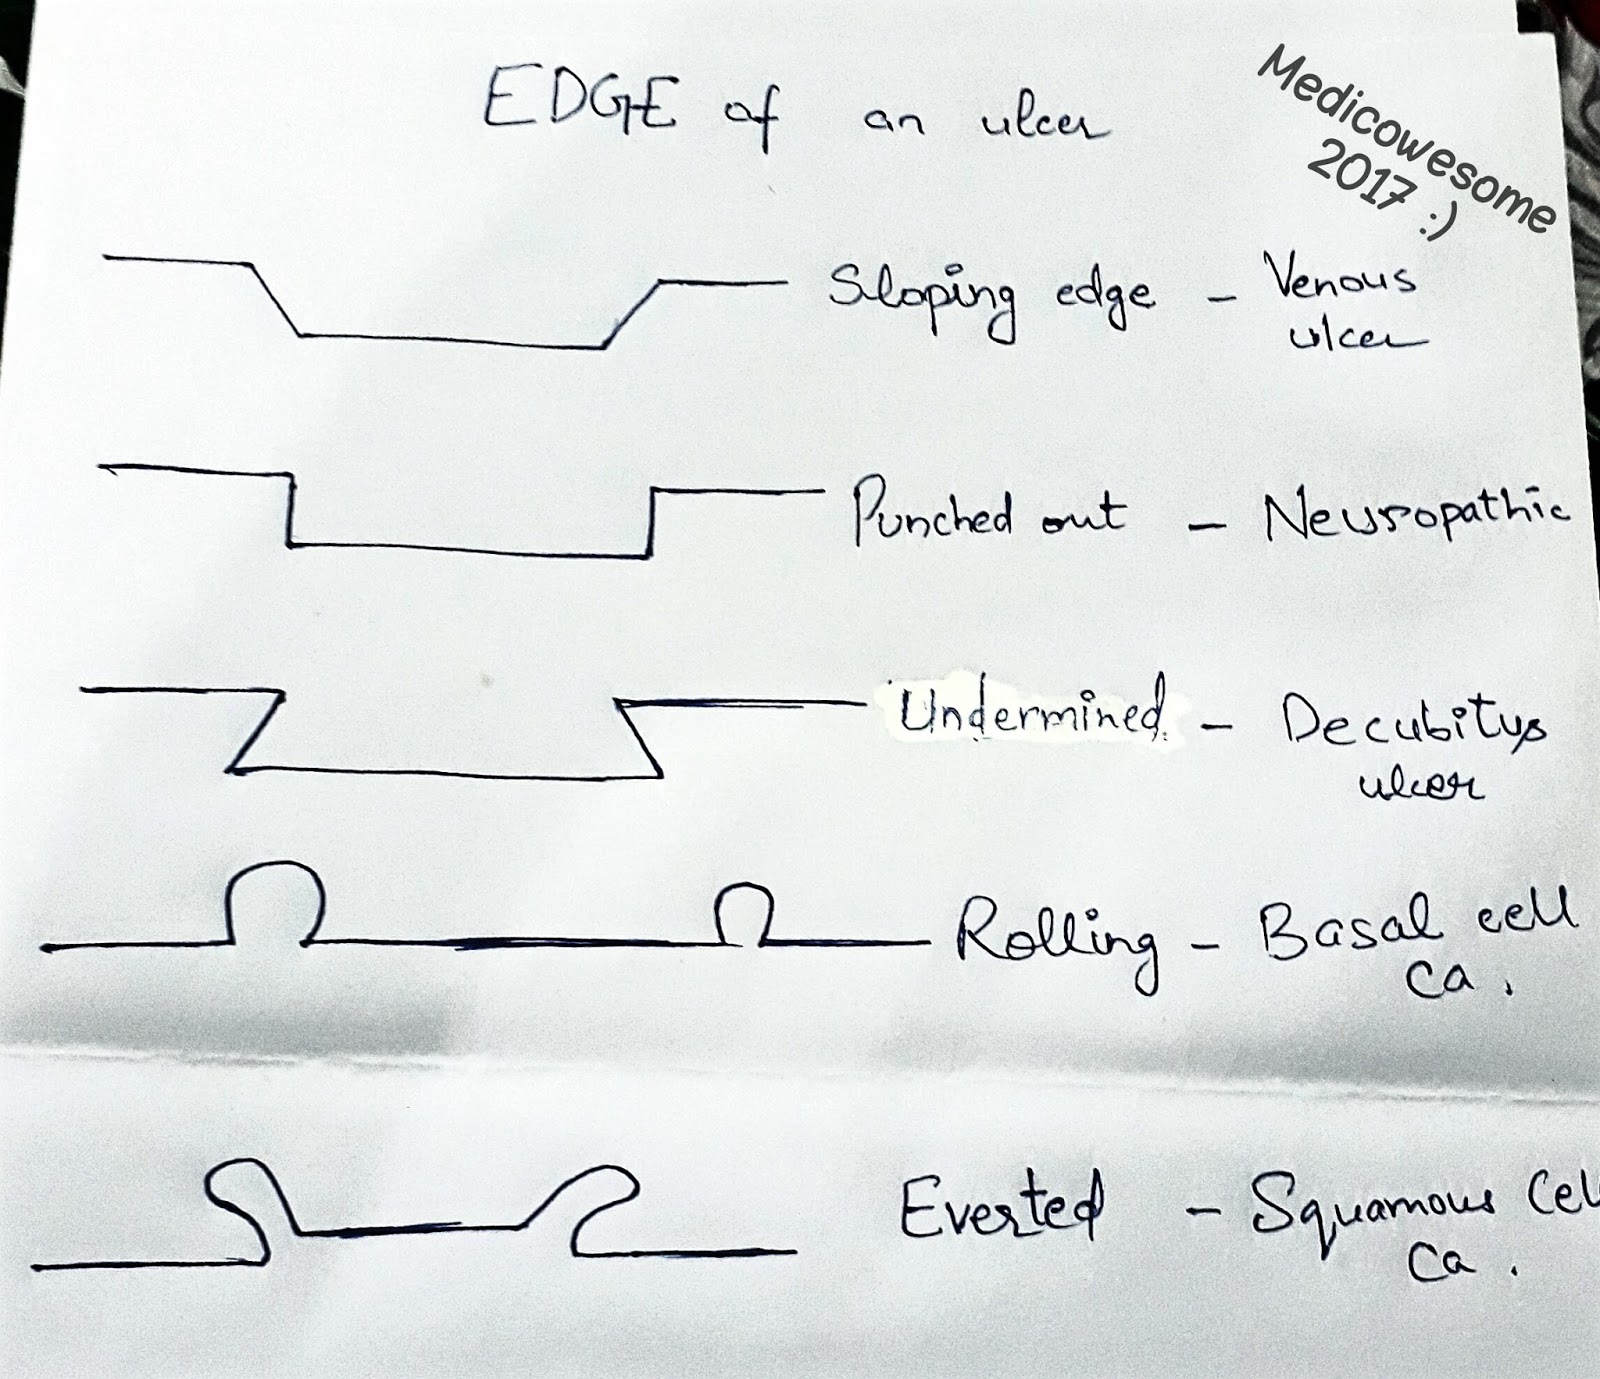 EDGE of an ulcer
Medicowesome
2017 :)
Sloping edge - Venous
ulcer
Punched out - Neuropathic
Undermined - Decubitus
ulcer
Rolling - Basal cell
Ca.
Everted - Squamous Cell
Ca.